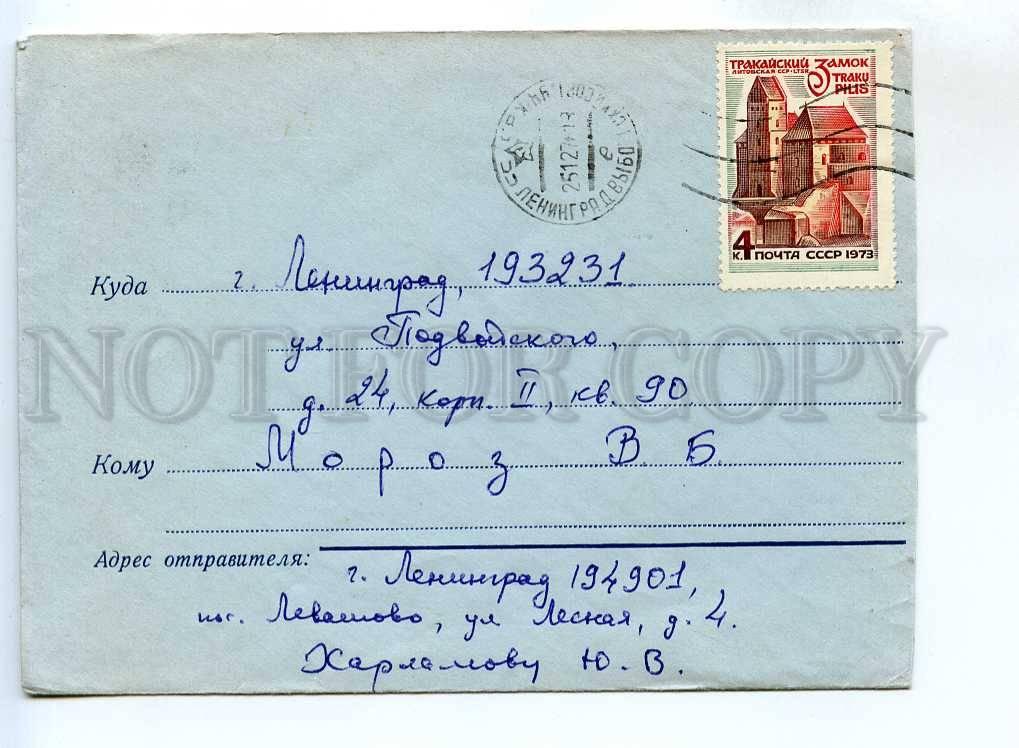 ТРАКАЙСКИЙ ЗАМОК
ЛИТОВСКАЯ ССР · LTSR TRAKŲ
PILIS
4 к. ПОЧТА СССР 1973
ЛЕНИНГРАД
Куда г. Ленинград, 193231
ул. Подвойского,
д. 24, корп. II, кв. 90
Кому Мороз В. Б.
Адрес отправителя:
г. Ленинград 194901,
пос. Левашово, ул Лесная, д. 4.
Харламову Ю. В.
NOT FOR COPY